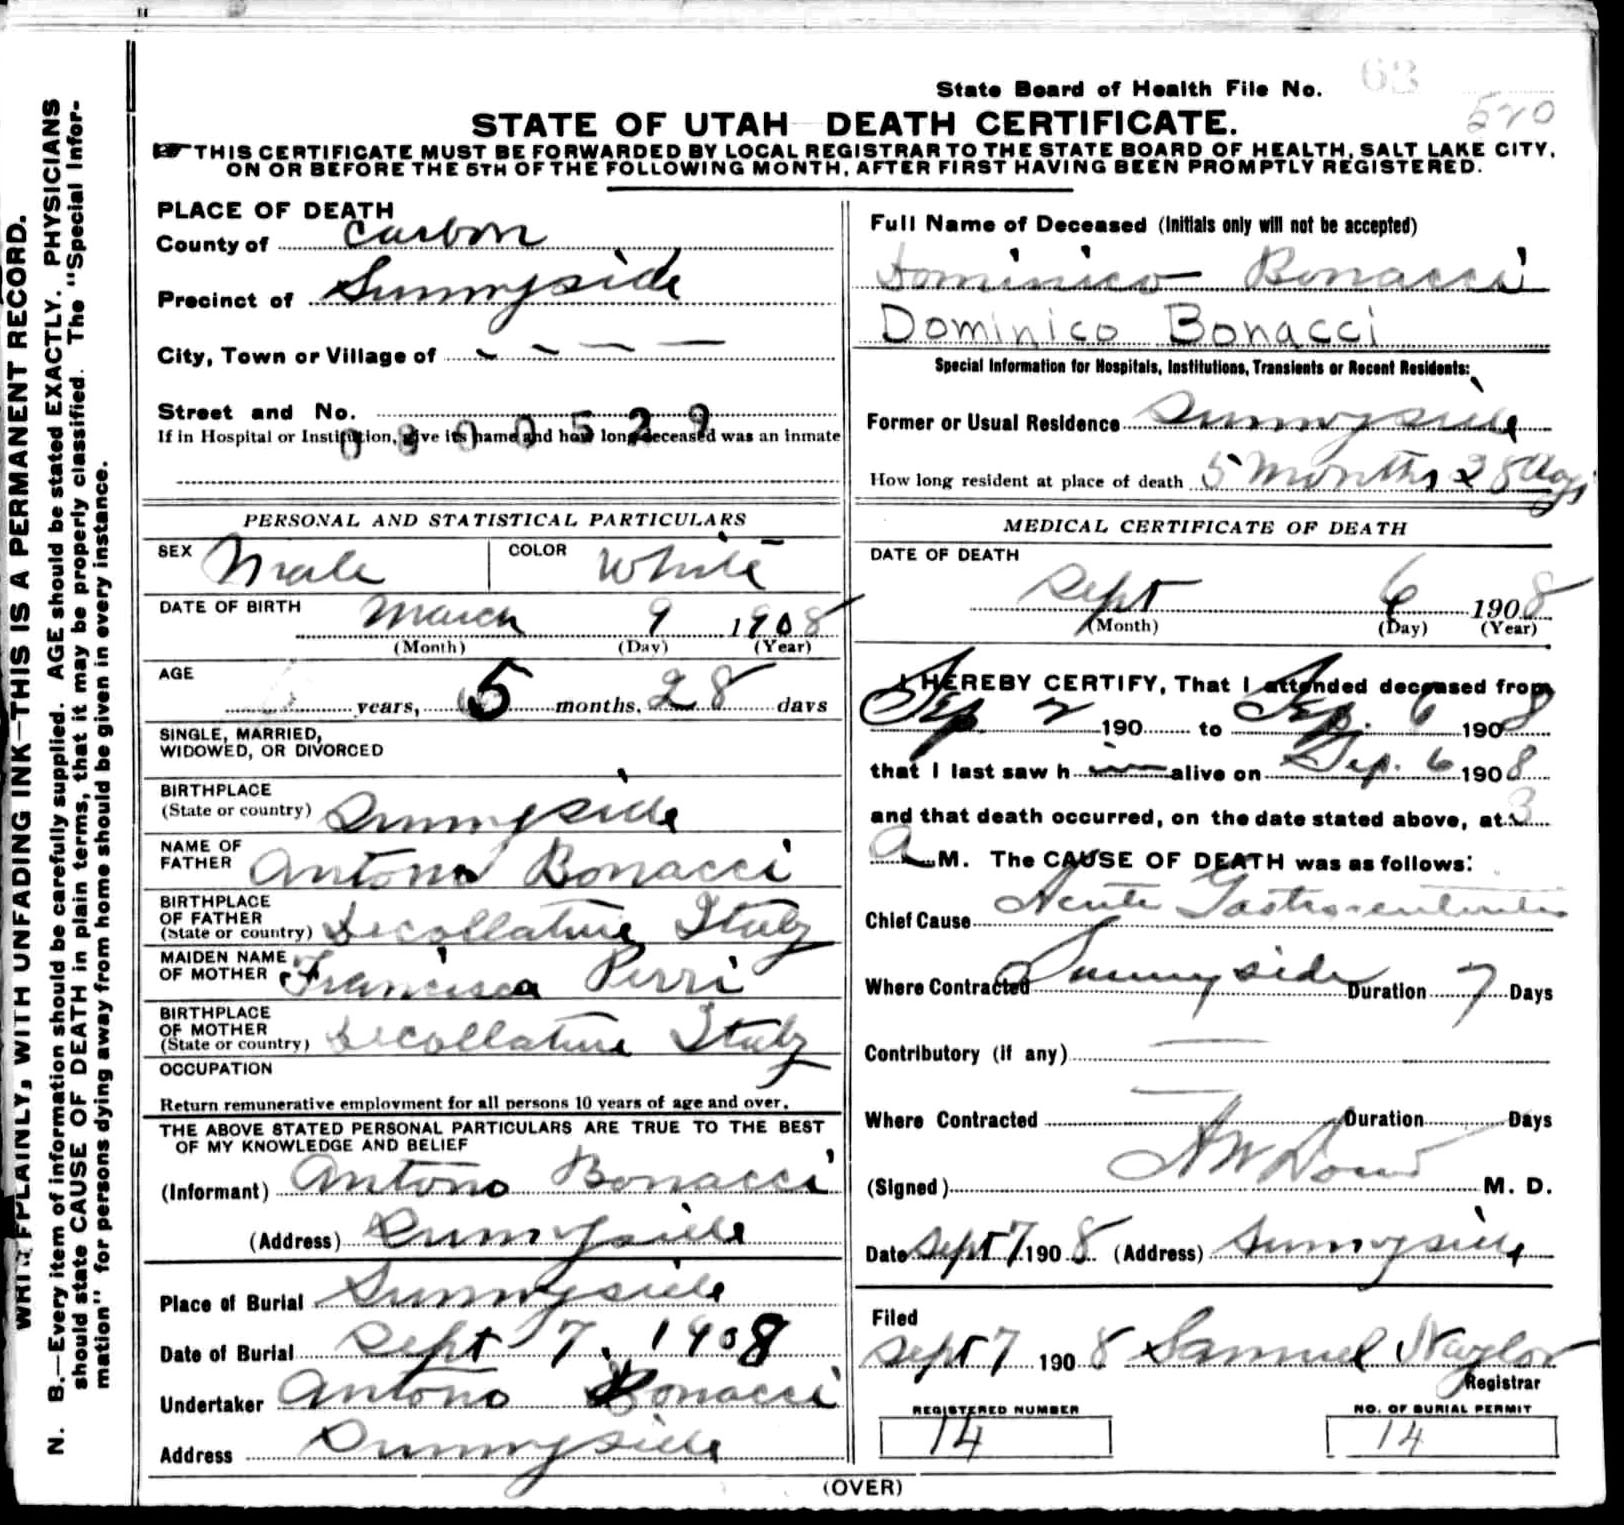 State Board of Health File No. 63
520
STATE OF UTAH DEATH CERTIFICATE.
THIS CERTIFICATE MUST BE FORWARDED BY LOCAL REGISTRAR TO THE STATE BOARD OF HEALTH, SALT LAKE CITY,
ON OR BEFORE THE 5TH OF THE FOLLOWING MONTH, AFTER FIRST HAVING BEEN PROMPTLY REGISTERED.
PLACE OF DEATH
County of Carbon
Precinct of Sunnyside
City, Town or Village of - - - -
Street and No.
If in Hospital or Institution, give its name and how long deceased was an inmate
0800529
PERSONAL AND STATISTICAL PARTICULARS
SEX Male COLOR White
DATE OF BIRTH March 9 1908
(Month) (Day) (Year)
AGE years, 5 months, 28 days
SINGLE, MARRIED,
WIDOWED, OR DIVORCED
BIRTHPLACE
(State or country) Sunnyside
NAME OF
FATHER Antono Bonacci
BIRTHPLACE
OF FATHER
(State or country) Decollature Italy
MAIDEN NAME
OF MOTHER Francisca Perri
BIRTHPLACE
OF MOTHER
(State or country) Decollature Italy
OCCUPATION
Return remunerative employment for all persons 10 years of age and over.
THE ABOVE STATED PERSONAL PARTICULARS ARE TRUE TO THE BEST
OF MY KNOWLEDGE AND BELIEF
(Informant) Antono Bonacci
(Address) Sunnyside
Place of Burial Sunnyside
Date of Burial Sept 7, 1908
Undertaker Antono Bonacci
Address Sunnyside
Full Name of Deceased (Initials only will not be accepted)
Dominico Bonacci
Dominico Bonacci
Special Information for Hospitals, Institutions, Transients or Recent Residents:
Former or Usual Residence Sunnyside
How long resident at place of death 5 Months 28 days
MEDICAL CERTIFICATE OF DEATH
DATE OF DEATH
Sept 6 1908
(Month) (Day) (Year)
I HEREBY CERTIFY, That I attended deceased from
Sep 2 190 to Sep. 6 1908
that I last saw h im alive on Sep. 6 1908
and that death occurred, on the date stated above, at 3
a M. The CAUSE OF DEATH was as follows:
Chief Cause Acute Gastro-enteritis
Where Contracted Sunnyside Duration 7 Days
Contributory (if any)
Where Contracted Duration Days
(Signed) A W Dowd M. D.
Date Sept 7 1908 (Address) Sunnyside
Filed
Sept 7 1908 Samuel Naylor
Registrar
REGISTERED NUMBER
14
NO. OF BURIAL PERMIT
14
(OVER)
WRITE PLAINLY, WITH UNFADING INK—THIS IS A PERMANENT RECORD.
N. B.—Every item of information should be carefully supplied. AGE should be stated EXACTLY. PHYSICIANS
should state CAUSE OF DEATH in plain terms, that it may be properly classified. The "Special Infor-
mation" for persons dying away from home should be given in every instance.